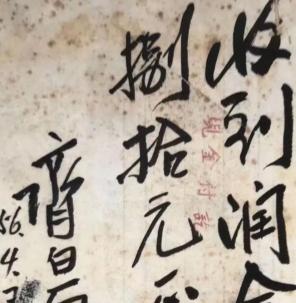 收到润金
捌拾元正
齊白石
56.4.
现金付讫